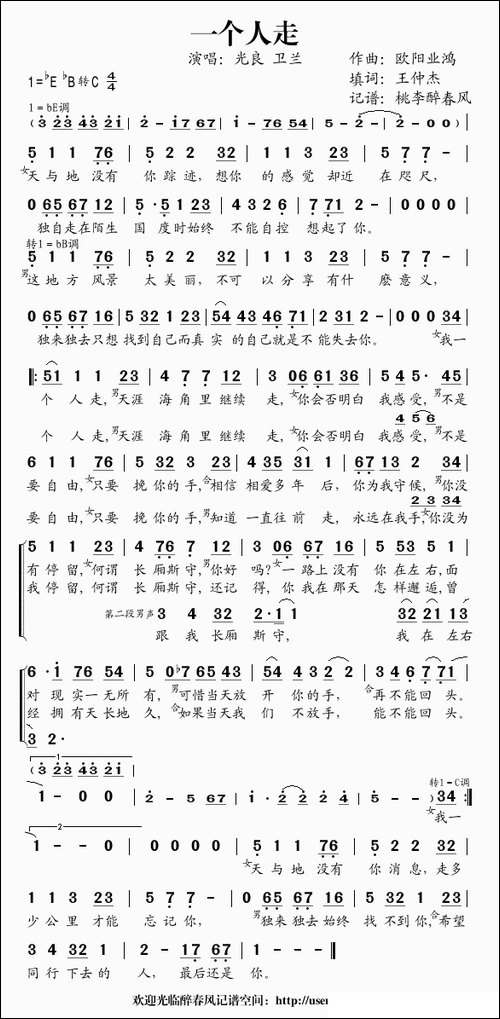 一个人走
演唱：光良 卫兰
作曲：欧阳业鸿
1=♭E ♭B转C 4/4
填词：王仲杰
记谱：桃李醉春风
1=bE调
(3 23 43 231 | 2 - 17 67 | 1 - 76 54 | 2 - - 2 | 2 - 0 0) |
5 1 1 76 | 5 2 2 32 | 1 1 3 23 | 5 7 7 - |
女天与地没有 你踪迹，想你 的感觉却近 在咫尺，
0 65 67 12 | 5 · 51 23 | 4 43 21 76 | 7 71 2 - | 0 0 0 0 |
独自走在陌生 国度时始终 不能自控 想起了你。
转1=bB调
5 1 1 76 | 5 2 2 32 | 1 1 3 23 | 5 7 7 - |
男这地方风景 太美丽，不可 以分享有什 麽意义，
0 65 67 16 | 5 32 1 23 | 54 43 46 71 | 2 31 2 - | 0 0 0 34 |
独来独去只想 找到自己而真 实的自己就是不能失去你。 女我一
51 1 1 23 | 4 7 7 12 | 3 06 61 36 | 5 45 · 45 |
个人走，男天涯 海角里继续 走，女你会否明白 我感受，男不是
4 5 6
个人走，男天涯 海角里继续 走，女你会否明白 我感受，男不是
6 1 1 75 | 5 32 3 23 | 4 35 31 1 | 67 13 2 34 |
要自由，女只要 挽你的手，合相信 相爱多年 后，你为我守候，男你没
23 34
要自由，女只要 挽你的手，男知道 一直往前 走，永远在我手，女你没为
5 1 1 23 | 4 76 5 12 | 3 06 67 16 | 5 53 5 1 |
有停留，女何谓 长厢厮守，男你好 吗？女一路上没有 你在左右，面
我停留，女何谓 长厢厮守，还记 得，你我在那天 怎样邂逅，曾
第二段男声 3 4 32 | 2 · 1 1 | 32 21 13
跟我长厢 斯守， 我在左右
6 · 1 76 54 | 5 0♭7 65 43 | 4 34 2 2 | 3 46 7 71 |
对现实一无所 有，男可惜当天放 开你的手， 合再不能回头。
经拥有天长地 久，合如果当天我 们不放手， 能不能回头。
3 2 ·
1
(3 23 43 21 |
1 - 0 0 | 2 - 5 67 | 1 · 2 2 4 | 5 - -) 34 :||
转1=C调
女我一
2
1 - - 0 | 0 0 0 0 | 5 1 1 76 | 5 2 2 32 |
女天与地没有 你消息，走多
1 1 3 23 | 5 7 7 - | 0 65 67 16 | 5 32 1 23 |
少公里才能 忘记你， 男独来独去始终 找不到你，合希望
3 4 32 1 | 2 - 17 67 | 1 - - - ||
同行下去的 人，最后还是 你。
欢迎光临醉春风记谱空间：http://user